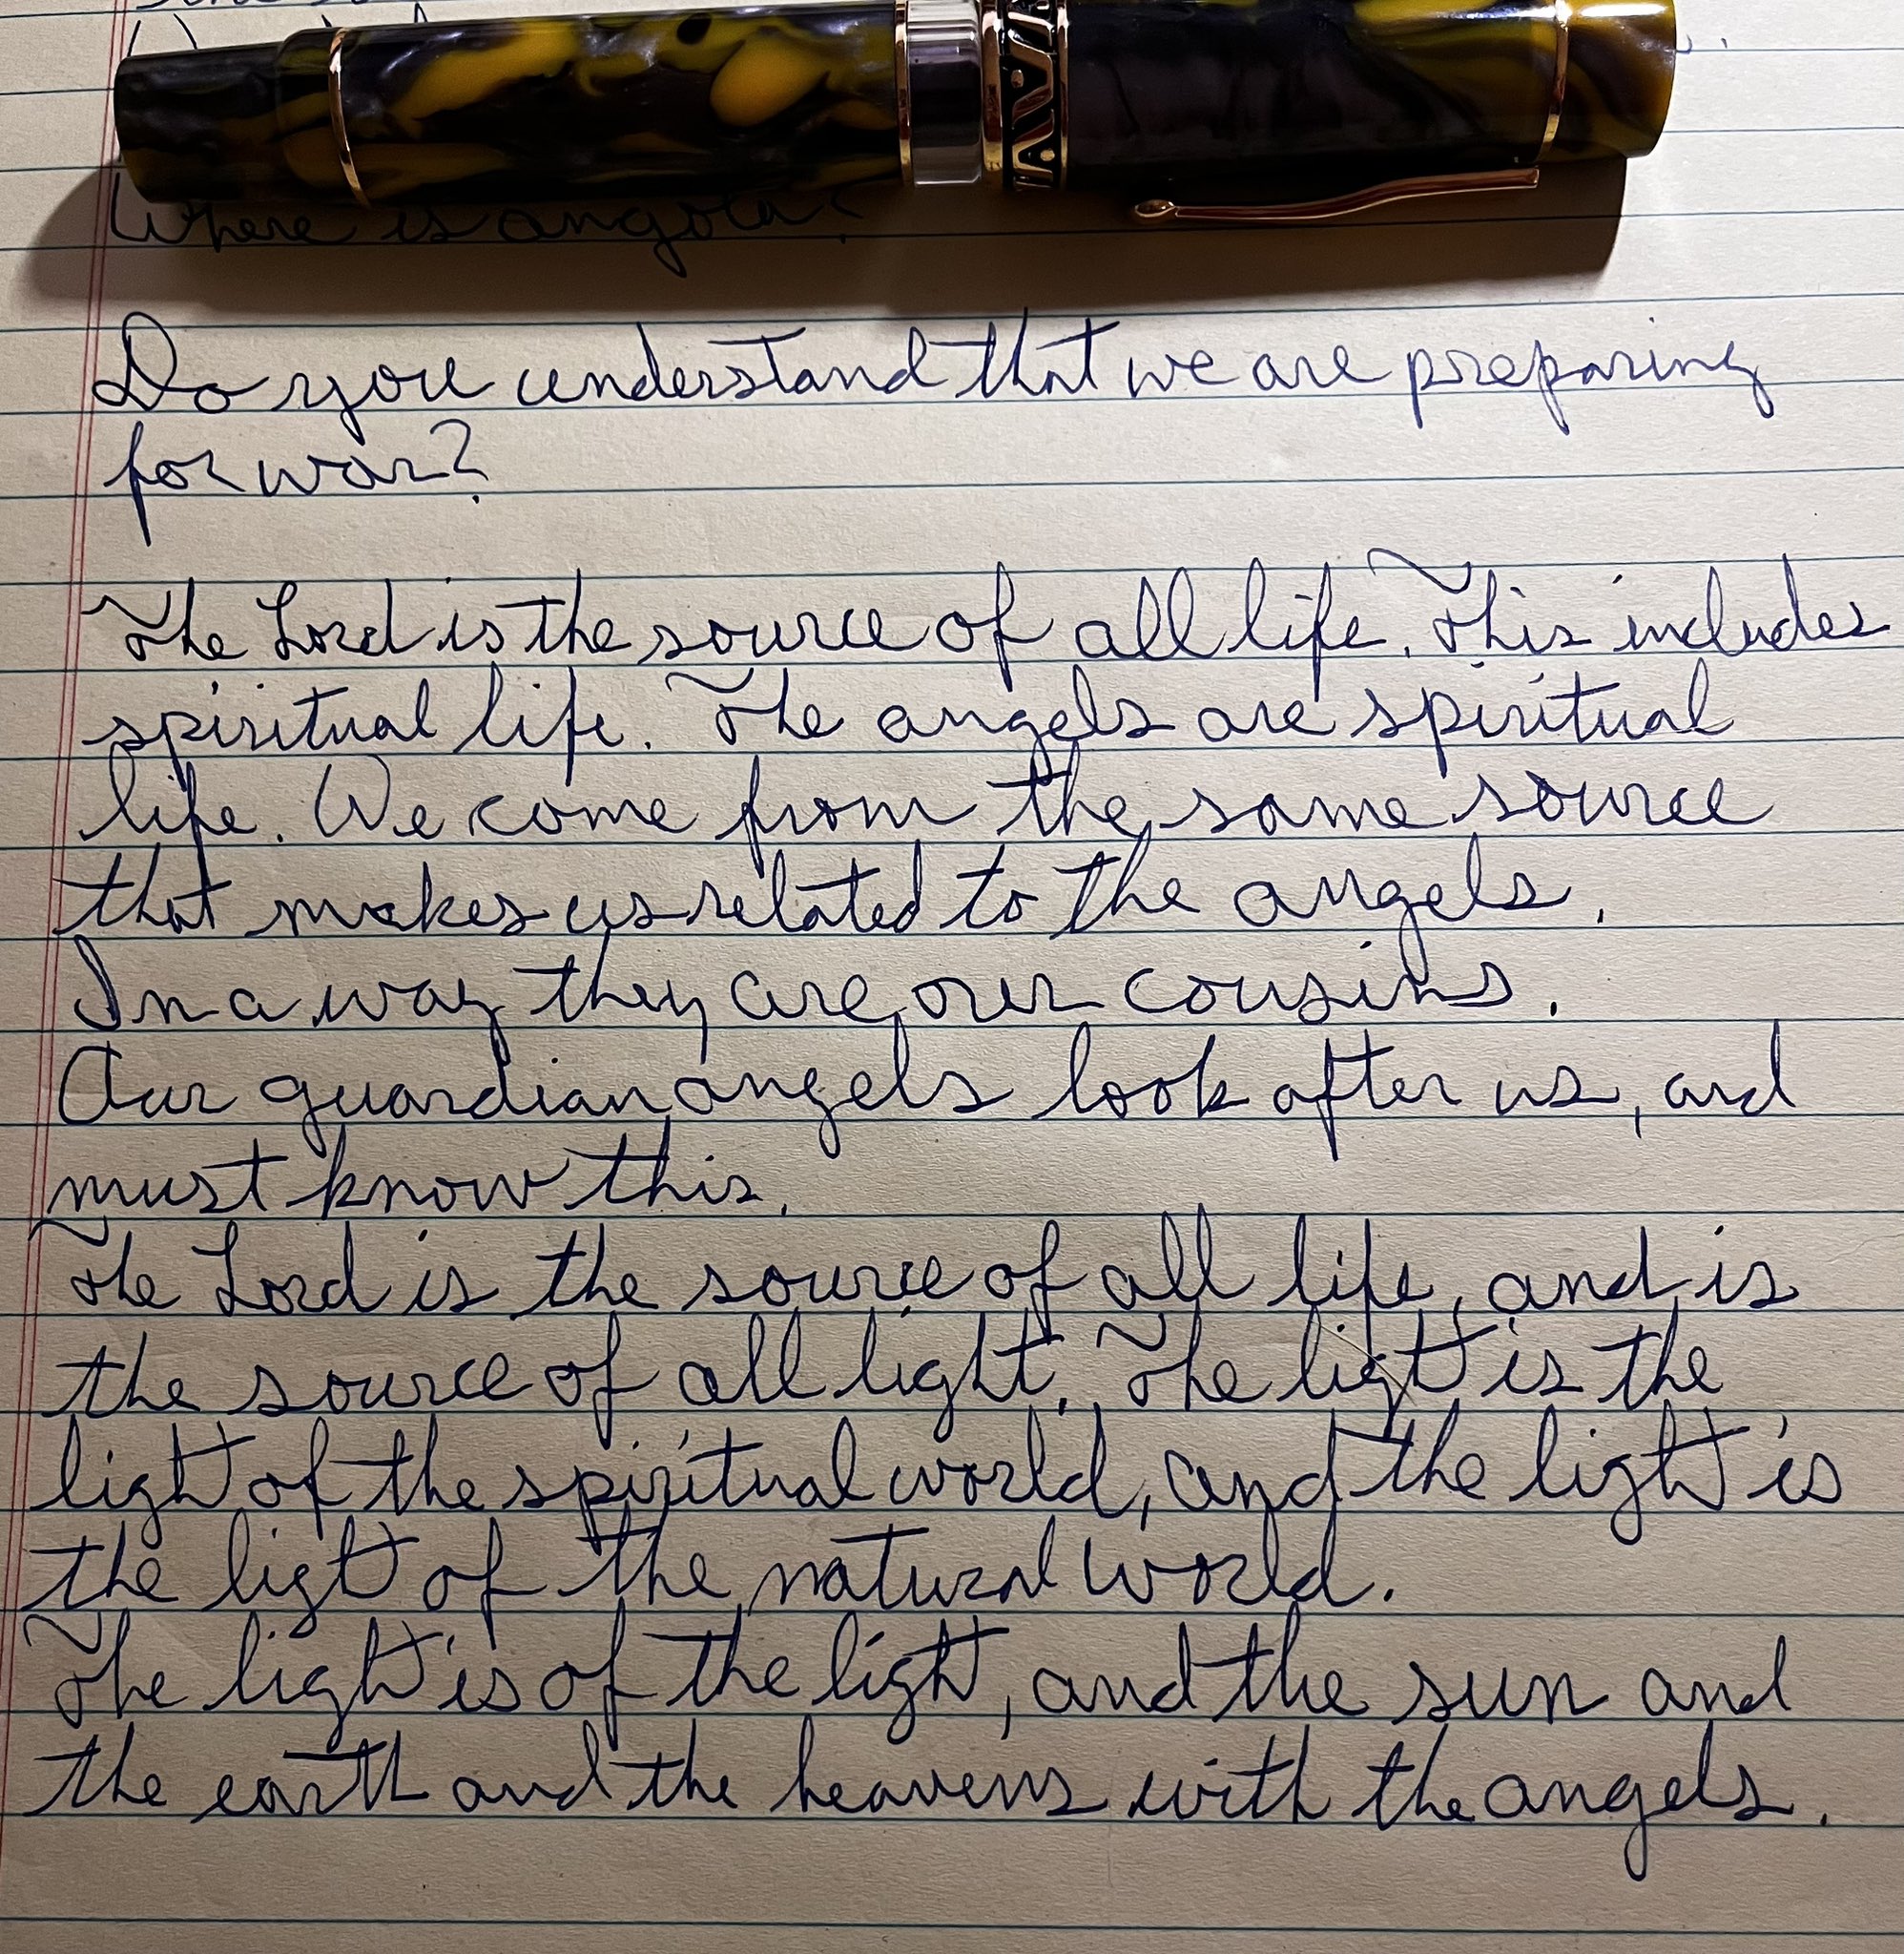 Where is angola?
Do you understand that we are preparing
for war?
The Lord is the source of all life. This includes
spiritual life. The angels are spiritual
life. We come from the same source
that makes us related to the angels.
In a way they are our cousins.
Our guardian angels look after us, and
must know this.
The Lord is the source of all life, and is
the source of all light. The ligt is the
light of the spiritual world, and the light is
the ligt of the natural world.
The light is of the light, and the sun and
the earth and the heavens with the angels.